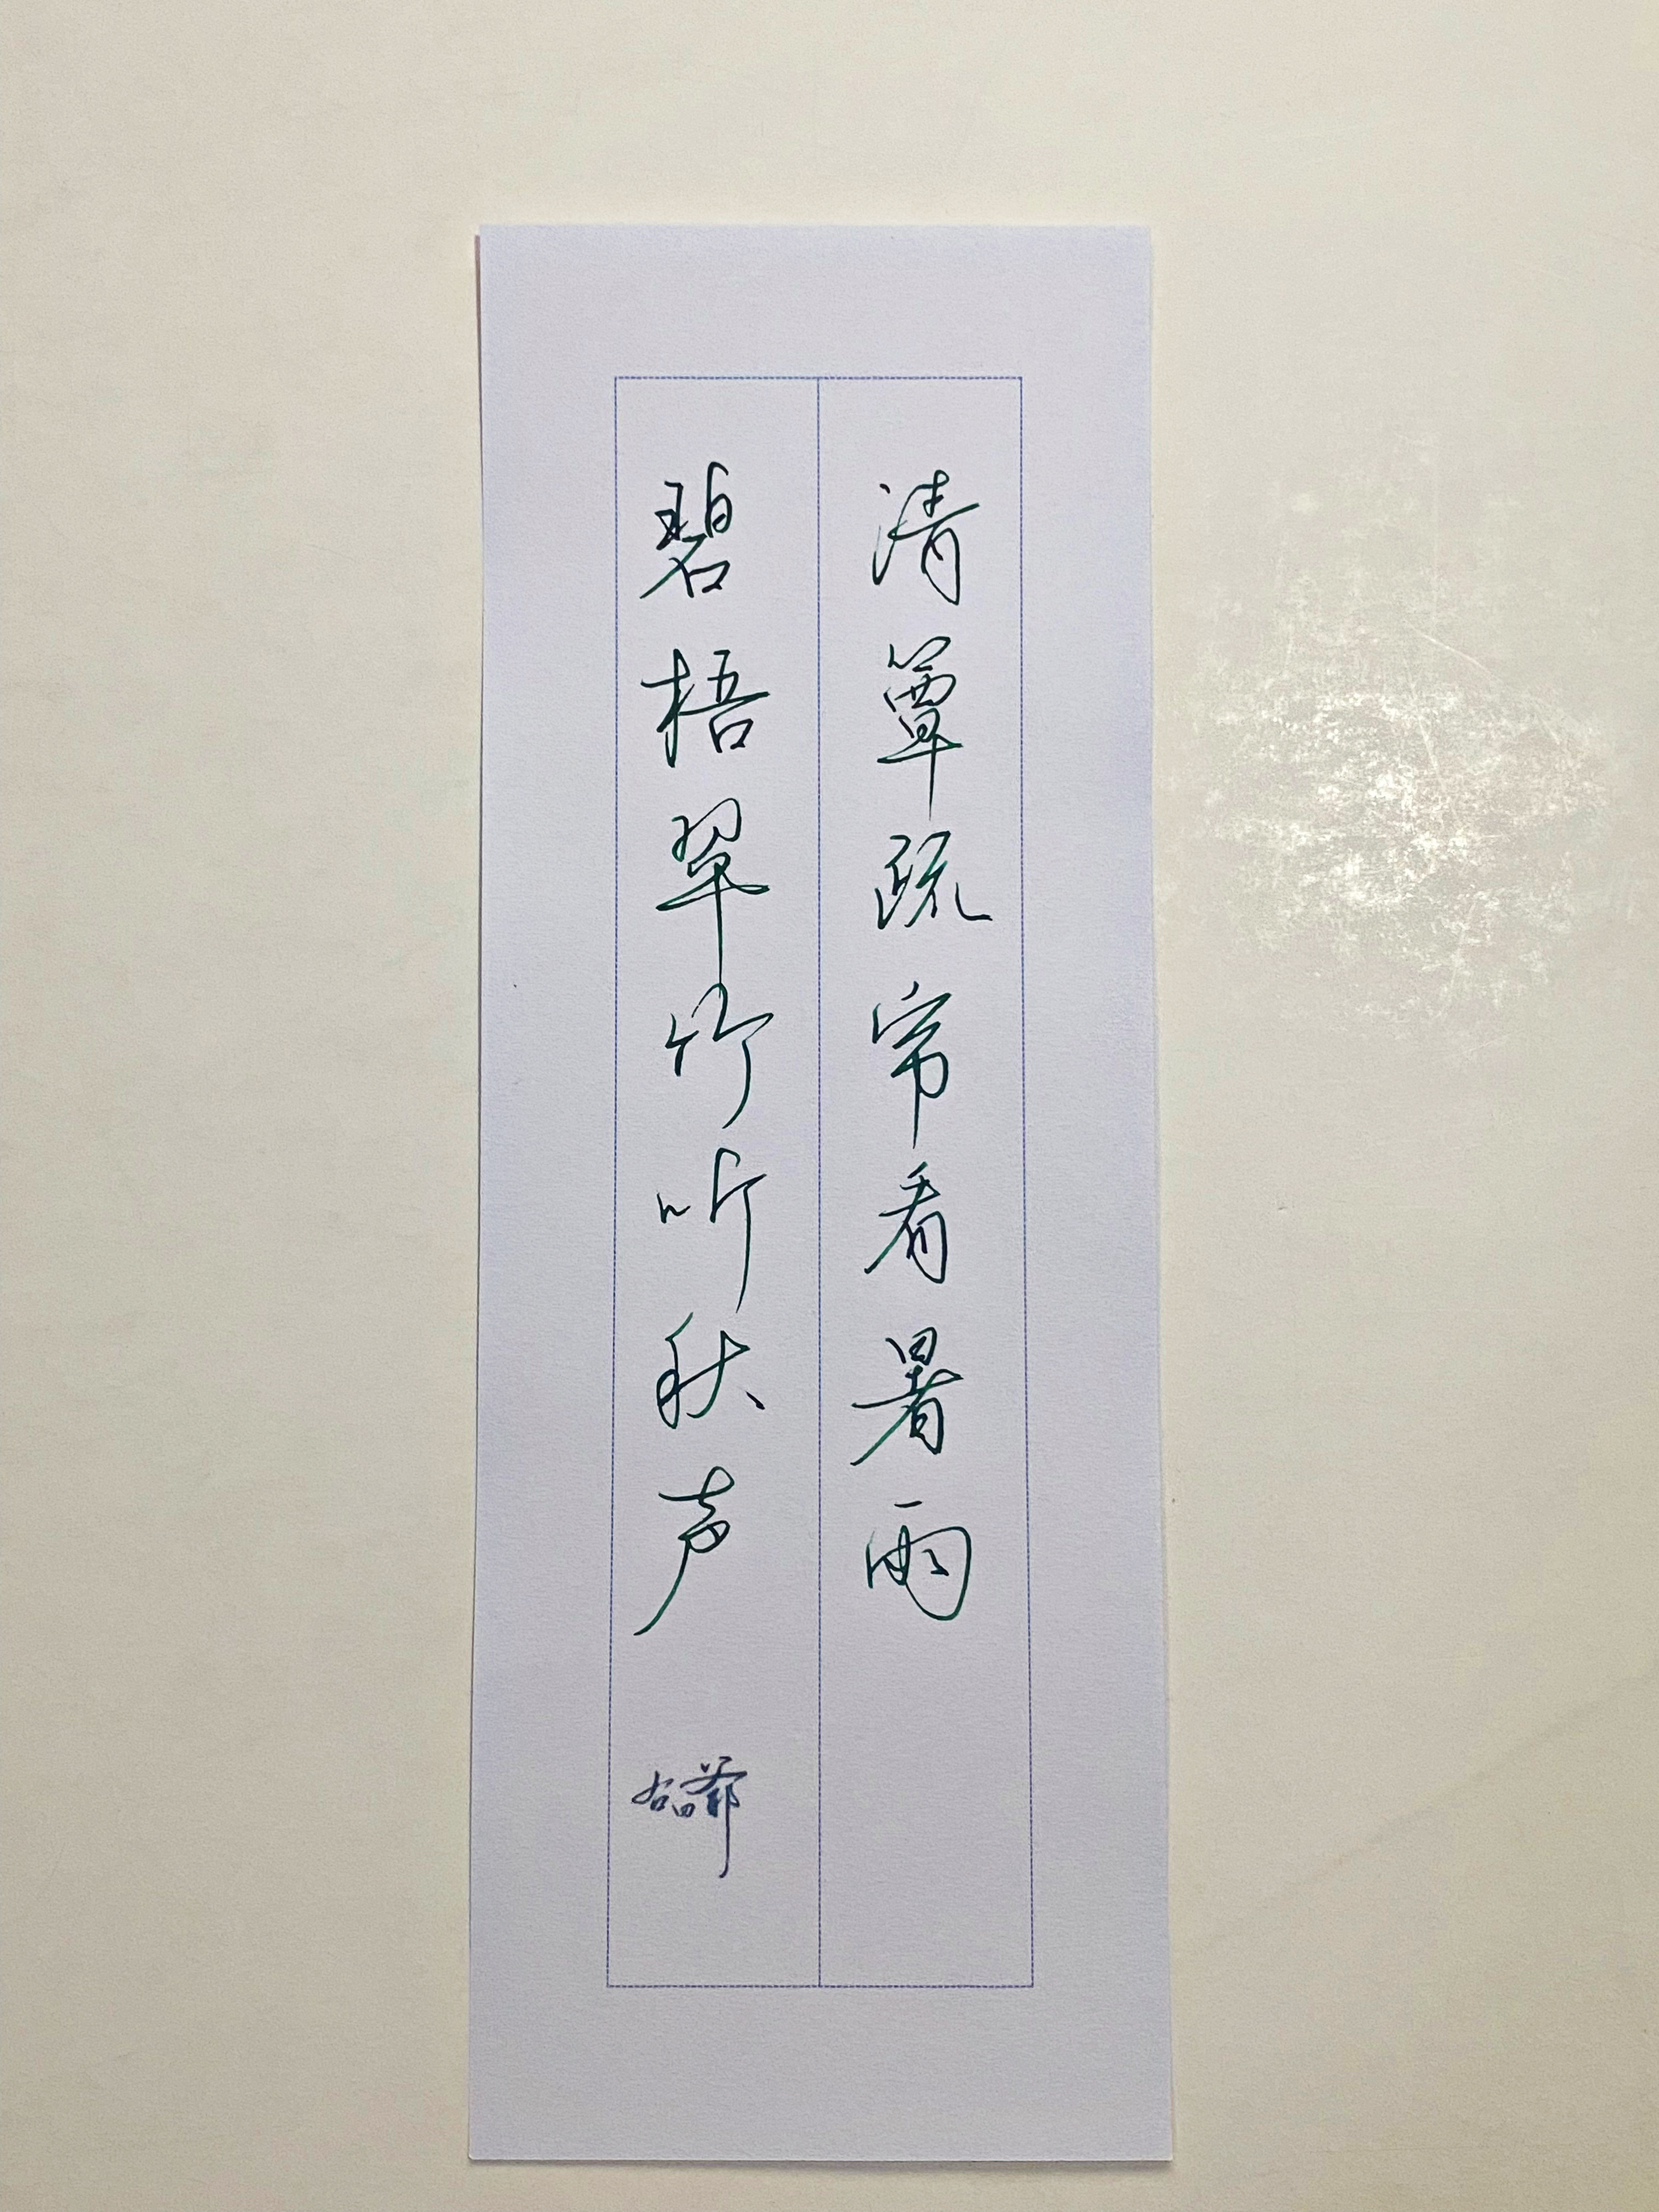 清簟疏帘看暑雨
碧梧翠竹听秋声